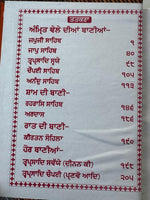 ਤਤਕਰਾ
ਅੰਮ੍ਰਿਤ ਵੇਲੇ ਦੀਆਂ ਬਾਣੀਆਂ-
ਜਪੁਜੀ ਸਾਹਿਬ ੧
ਜਾਪੁ ਸਾਹਿਬ ੪੦
ਤ੍ਵਪ੍ਰਸਾਦਿ ਸਵੈਯੇ ੯੮
ਚੌਪਈ ਸਾਹਿਬ ੧੦੫
ਅਨੰਦੁ ਸਾਹਿਬ ੧੧੩
ਸ਼ਾਮ ਦੀ ਬਾਣੀ-
ਰਹਰਾਸਿ ਸਾਹਿਬ ੧੪੦
ਅਰਦਾਸ ੧੮੯
ਰਾਤ ਦੀ ਬਾਣੀ-
ਕੀਰਤਨ ਸੋਹਿਲਾ ੧੯੦
ਹੋਰ ਬਾਣੀਆਂ-
ਤ੍ਵਪ੍ਰਸਾਦਿ ਸਵੱਯੇ (ਦੀਨਨ ਕੀ) ੧੯੮
ਤ੍ਵਪ੍ਰਸਾਦਿ ਚੌਪਈ (ਪ੍ਰਣਵੋ ਆਦਿ) ੨੦੫